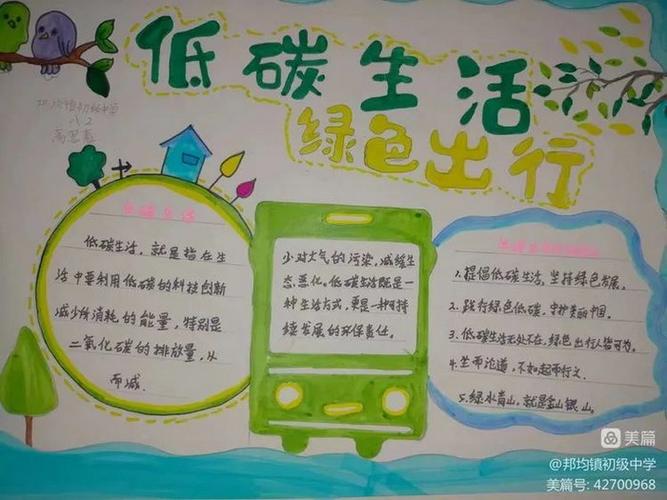 低碳生活
绿色出行
邦均镇初级中学
八2
低碳生活
低碳生活，就是指在生
活中要利用低碳的科技创新
减少所消耗的能量，特别是
二氧化碳的排放量，从
而减
少对大气的污染，减缓生
态恶化。低碳生活既是一
种生活方式，更是一种可持
续发展的环保责任。
1.提倡低碳生活，坚持绿色发展。
2.践行绿色低碳，守护美丽中国。
3.低碳生活无处不在，绿色出行人皆可为。
4.坐而论道，不如起而行文
5.绿水青山，就是金山银山。
美篇
@邦均镇初级中学
美篇号: 42700968